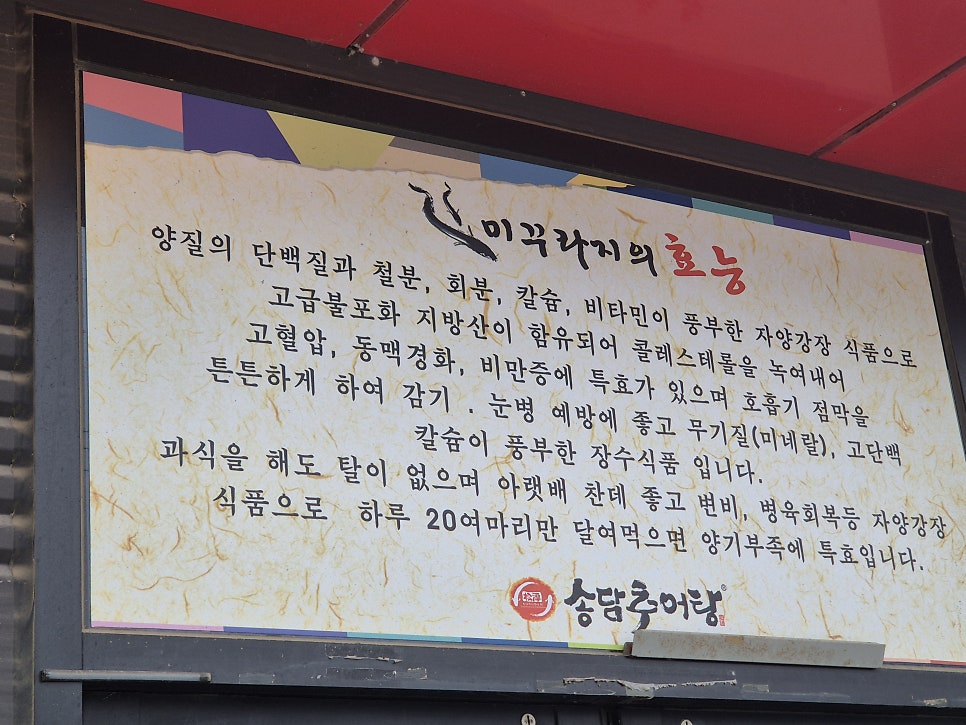 미꾸라지의 효능
양질의 단백질과 철분, 회분, 칼슘, 비타민이 풍부한 자양강장 식품으로
고급불포화 지방산이 함유되어 콜레스테롤을 녹여내어
고혈압, 동맥경화, 비만증에 특효가 있으며 호흡기 점막을
튼튼하게 하여 감기 . 눈병 예방에 좋고 무기질(미네랄), 고단백
칼슘이 풍부한 장수식품 입니다.
과식을 해도 탈이 없으며 아랫배 찬데 좋고 변비, 병육회복등 자양강장
식품으로 하루 20여마리만 달여먹으면 양기부족에 특효입니다.
송담추어탕